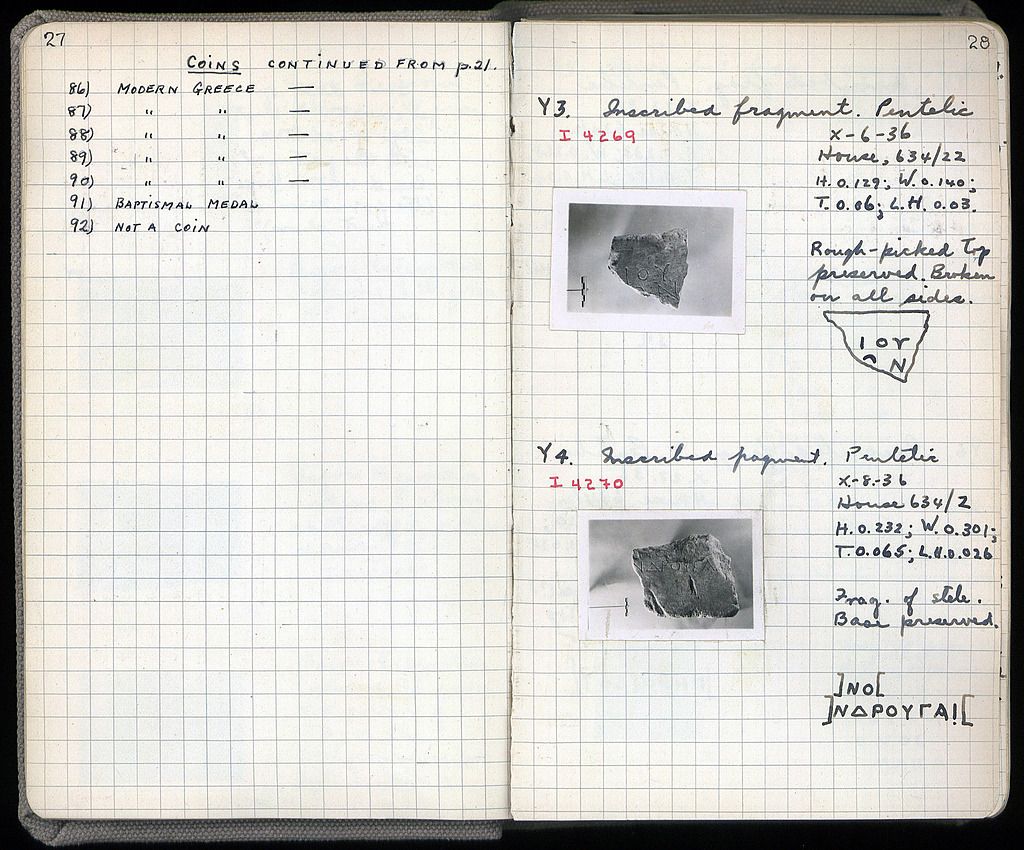 27
COINS CONTINUED FROM p.21.
86) MODERN GREECE —
87) " " —
88) " " —
89) " " —
90) " " —
91) BAPTISMAL MEDAL
92) NOT A COIN
28
Y3. Inscribed fragment. Pentelic
I 4269
X-6-36
House, 634/22
H. 0.129; W. 0.140;
T. 0.06; L.H. 0.03.
Rough-picked top
preserved. Broken
on all sides.
Ι ΟΥ
Ν
Y4. Inscribed fragment. Pentelic
I 4270
X-8-36
House 634/2
H. 0.232; W. 0.301;
T. 0.065; L.H. 0.026
Frag. of stele.
Base preserved.
]ΝΟ[
]ΝΔΡΟΥΓΑΙ[